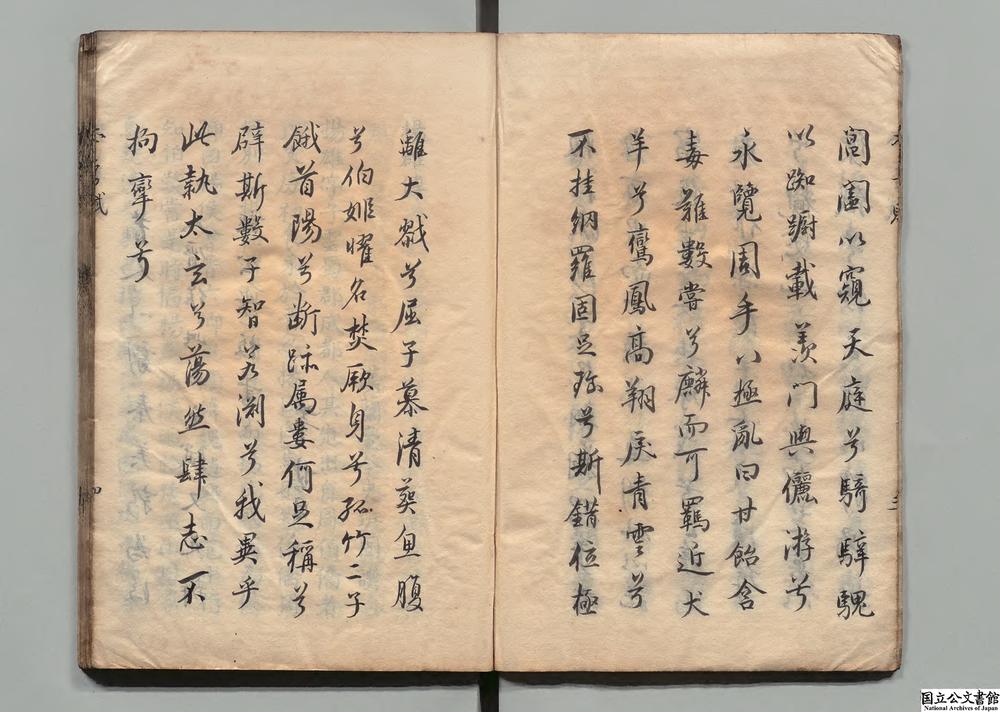 閶闔以窺天庭兮騎騂騩
以踟躕載羨門與儷游兮
永覽周乎八極亂曰甘飴含
毒難數嘗兮麟而可羈近犬
羊兮鸞鳳高翔戾青雲兮
不挂網羅固足珎兮斯錯位極
離大戮兮屈子慕清葬魚腹
兮伯姬曜名焚厥身兮孤竹二子
餓首陽兮断跡属婁何足稱兮
辟斯數子智若渊兮我異乎
此執太玄兮蕩然肆志不
拘攣兮
国立公文書館
National Archives of Japan